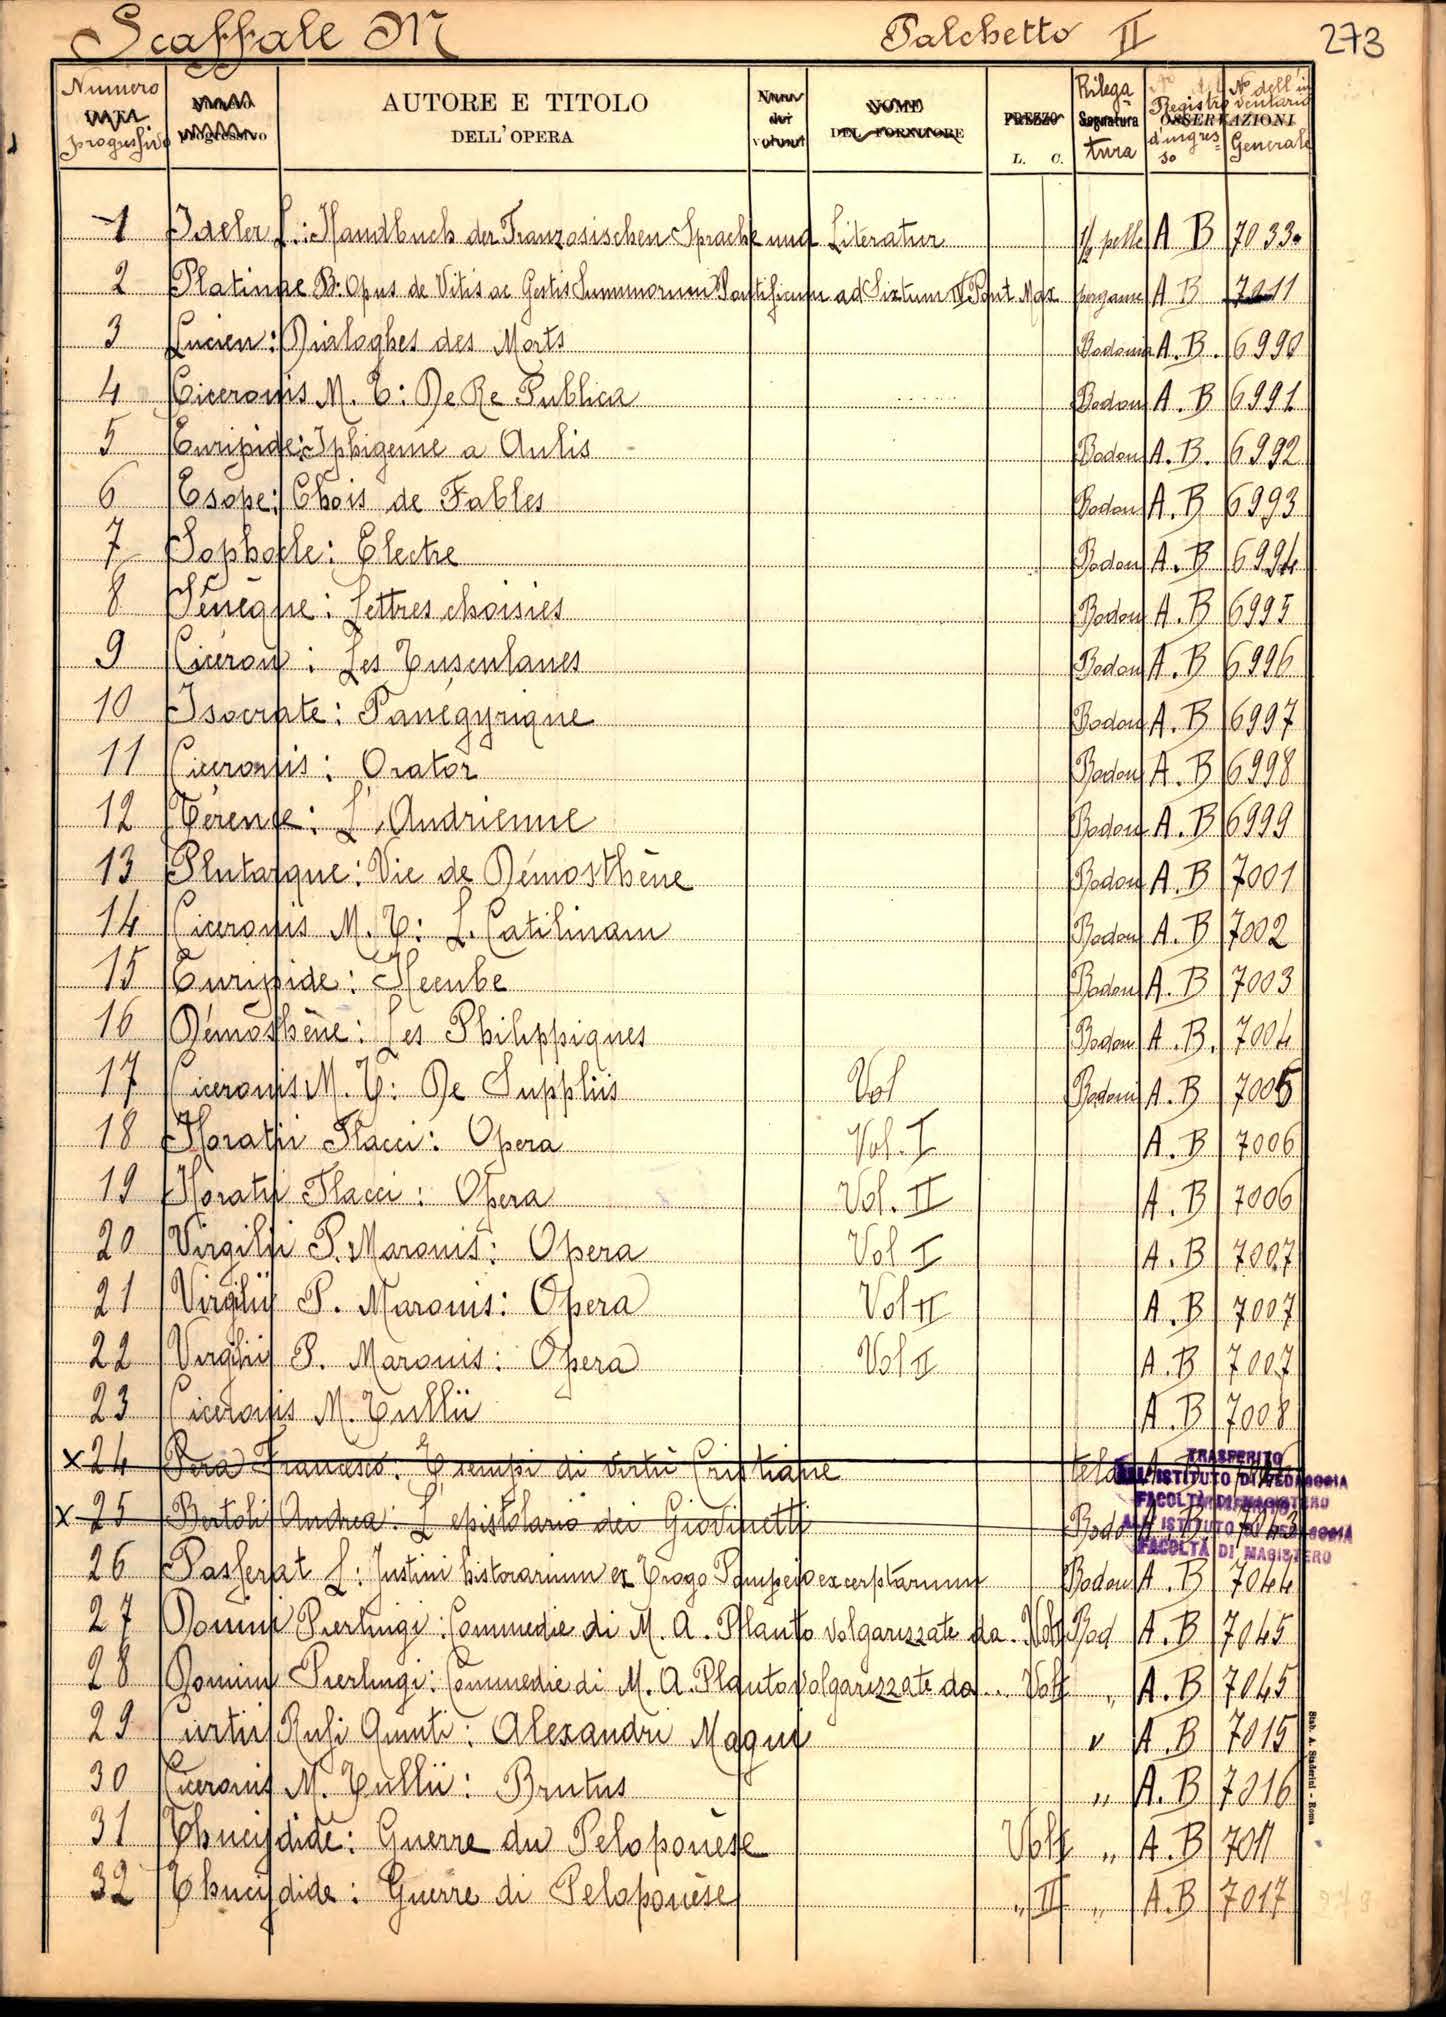 Scaffale M Palchetto II 273
Numero progressivo AUTORE E TITOLO DELL'OPERA Rilegatura Registro d'ingresso N° dell'inventario Generale
DATA progressivo Num. dei volumi NOME DEL FORNITORE PREZZO L. C. Segnatura OSSERVAZIONI
1 Ideler L.: Handbuch der Französischen Sprache und Literatur 1/2 pelle A B 7033
2 Platinae B: Opus de Vitis ac Gestis Summorum Pontificum ad Sixtum IV Pont Max pergame A B 7011
3 Lucien: Dialoghes des Morts Bodonia A.B. 6990
4 Ciceronis M. T: De Re Publica Bodon A.B 6991
5 Euripide: Iphigenie a Aulis Bodon A.B. 6992
6 Esope: Chois de Fables Bodon A.B 6993
7 Sophocle: Electre Bodon A.B 6994
8 Sénèque: Lettres choisies Bodon A.B 6995
9 Cicéron: Les Tusculanes Bodon A.B 6996
10 Isocrate: Panégyrique Bodon A.B 6997
11 Ciceronis: Orator Bodon A.B 6998
12 Térence: L'Andrienne Bodon A.B 6999
13 Plutarque: Vie de Démosthène Bodon A.B 7001
14 Ciceronis M. T: L. Catilinam Bodon A.B 7002
15 Euripide: Hecube Bodon A.B 7003
16 Démosthène: Les Philippiques Bodon A.B. 7004
17 Ciceronis M. T: De Suppliis Vol Bodoni A.B 7005
18 Horatii Flacci: Opera Vol. I A.B 7006
19 Horatii Flacci: Opera Vol. II A.B 7006
20 Virgilii P. Maronis: Opera Vol I A.B 7007
21 Virgilii P. Maronis: Opera Vol II A.B 7007
22 Virgilii P. Maronis: Opera Vol II A.B 7007
23 Ciceronis M. Tullii A.B 7008
x 24 Pera Francesco: Esempi di virtù Cristiane tela
TRASFERITO
ALL'ISTITUTO DI PEDAGOGIA
FACOLTÀ DI MAGISTERO
x 25 Bertoli Andrea: L'epistolario dei Giovinetti Bodo A.B. 7043
ALL'ISTITUTO DI PEDAGOGIA
FACOLTÀ DI MAGISTERO
26 Passerat L: Justini historiarum ex Trogo Pompeio excerptarum Bodon A.B 7044
27 Donini Pierluigi: Commedie di M. A. Plauto volgarizzate da. Vol I Bod A.B 7045
28 Donini Pierluigi: Commedie di M. A. Plauto volgarizzate da... Vol I „ A.B 7045
29 Curtii Rufi Quinti: Alexandri Magni „ A.B 7015
30 Ciceronis M. Tullii: Brutus „ A.B 7016
31 Thucydide: Guerre du Peloponèse Vol I „ A.B 7017
32 Thucydide: Guerre di Peloponèse „ II „ A.B 7017
Stab. A. Staderini - Roma